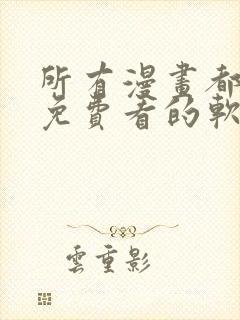 所有漫畫都
免費看的軟
雲重影